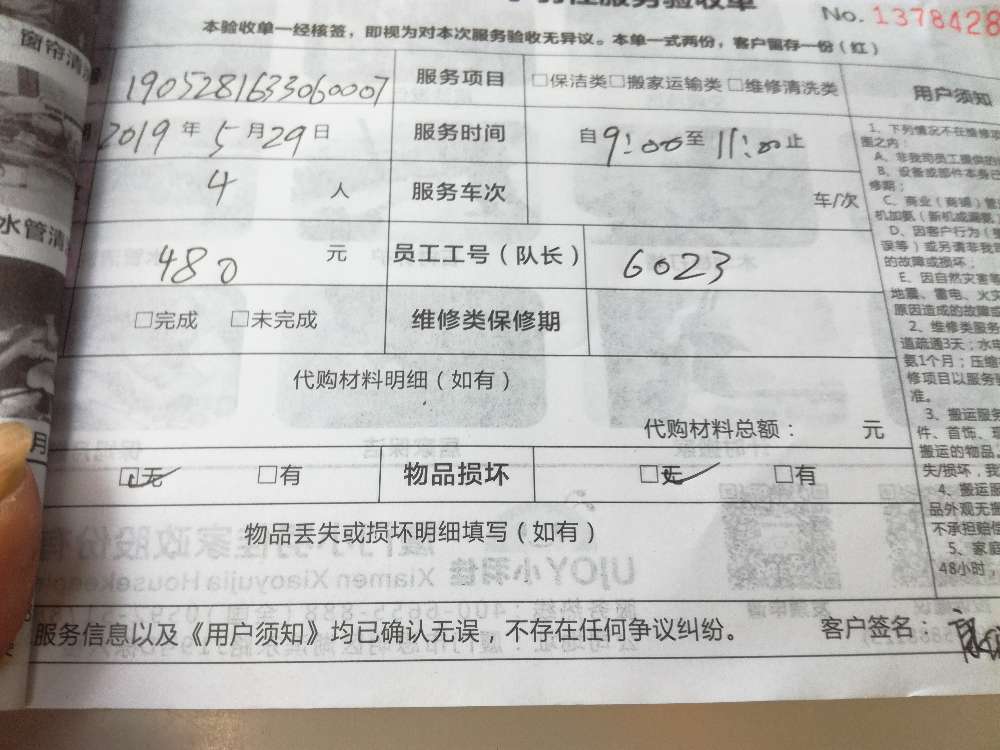 服务验收单
No. 1378428
本验收单一经核签，即视为对本次服务验收无异议。本单一式两份，客户留存一份（红）
1905281633060007 服务项目 □保洁类□搬家运输类 □维修清洗类 用户须知
2019年5月29日 服务时间 自9:00至11:00止
4人 服务车次 车/次
480元 员工工号（队长） 6023
□完成 □未完成 维修类保修期
代购材料明细（如有）
代购材料总额： 元
□无 □有 物品损坏 □无 □有
物品丢失或损坏明细填写（如有）
服务信息以及《用户须知》均已确认无误，不存在任何争议纠纷。 客户签名：
1、下列情况不在维修
围之内：
A、非我司员工提供的
B、设备或部件本身已
修期；
C、商业（商铺）
机加氨（新机或漏氨
D、因客户行为（
误等）或另请非我
的故障或损坏；
E、因自然灾害等
地震、雷电、火
原因造成的故障或
2、维修类服务
道疏通3天；水电
氨1个月；压缩
修项目以服务
准。
3、搬运服务
件、首饰、
搬运的物品
失/损坏，我
4、搬运服
品外观无
不承担赔偿
5、家庭
48小时，
窗帘清
水管清
月